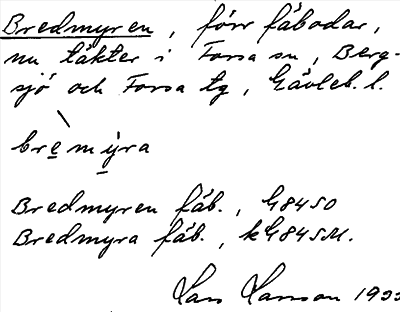 Bredmyren, förr fäbodar,
nu täkter i Forsa sn, Berg-
sjö och Forsa tg, Gävleb. l.
bremýra
Bredmyren fäb., G8450
Bredmyra fäb., kG845M.
Lars Larsson 19